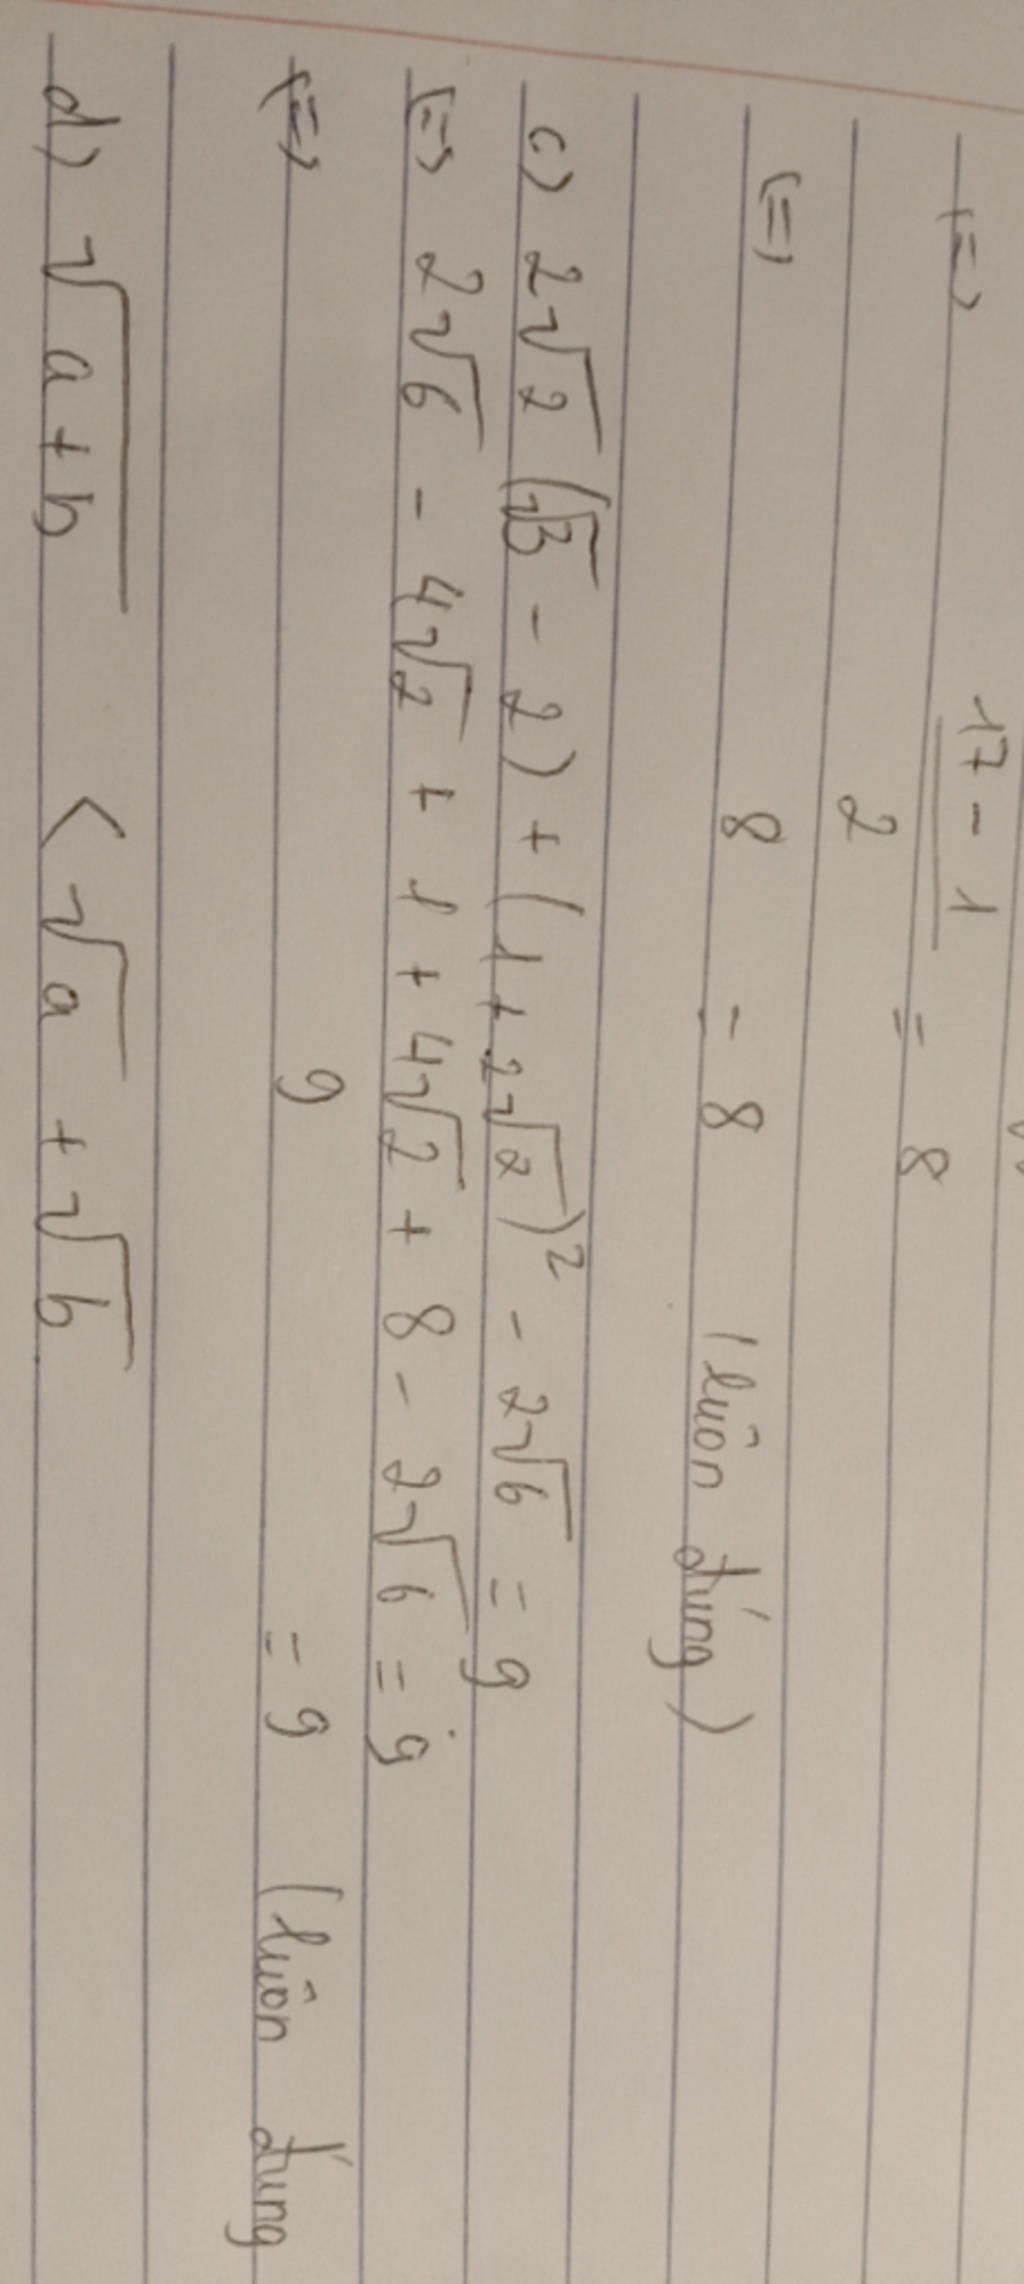 (=) 17 - 1 / 2 = 8
(=) 8 = 8 (luôn đúng)
c) 2√2 (√3 - 2) + (1 + 2√2)² - 2√6 = 9
(=) 2√6 - 4√2 + 1 + 4√2 + 8 - 2√6 = 9
(=) 9 = 9 (luôn đúng
d) √(a + b) < √a + √b